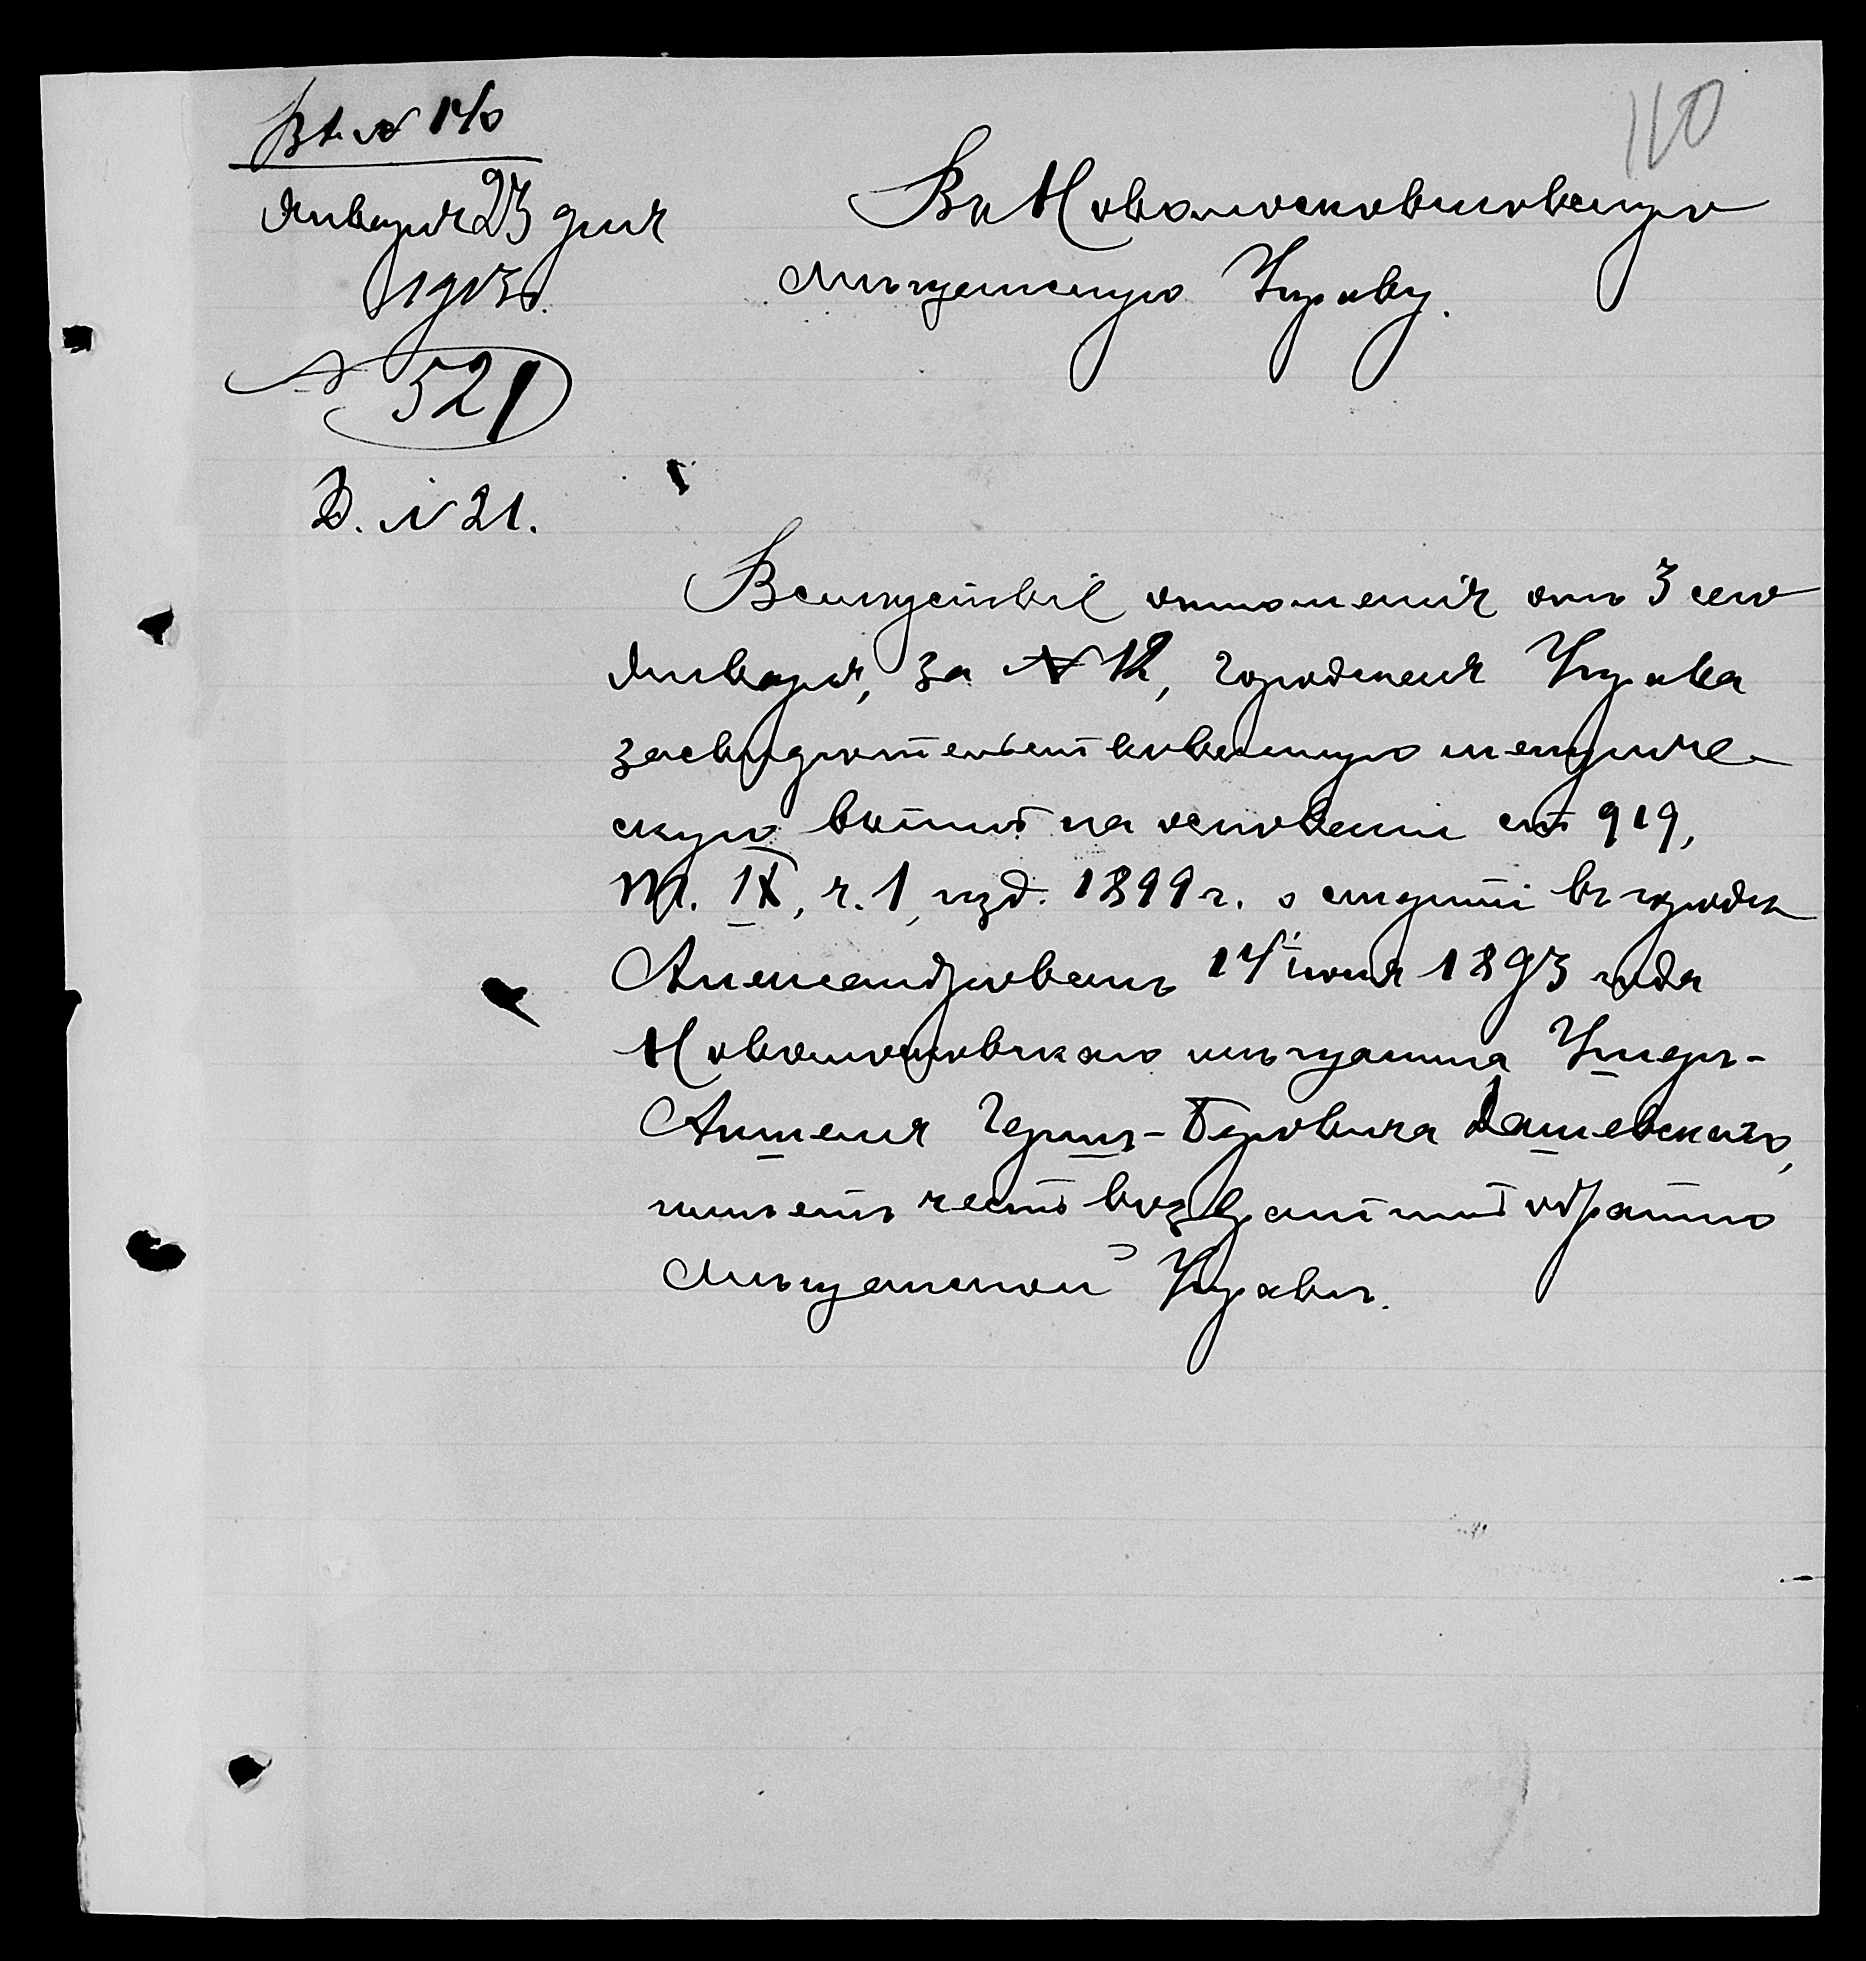 Вх. № 140
110
Января 23 дня
1913 г.
№ 521
Д. № 21.
Въ Новомосковскую
Мѣщанскую Управу.
Вслѣдствіе отношенія отъ 3 сего
Января, за № 12, Городская Управа
засвидѣтельствованную метриче-
скую выпись на основаніи ст. 919,
т. IX, ч. 1, изд. 1899 г. о смерти въ городѣ
Александровскѣ 14 іюня 1893 года
Новомосковскаго мѣщанина
Аншеля Гершъ-Беровича Дашевскаго,
имѣетъ честь возвратить обратно
Мѣщанской Управѣ.